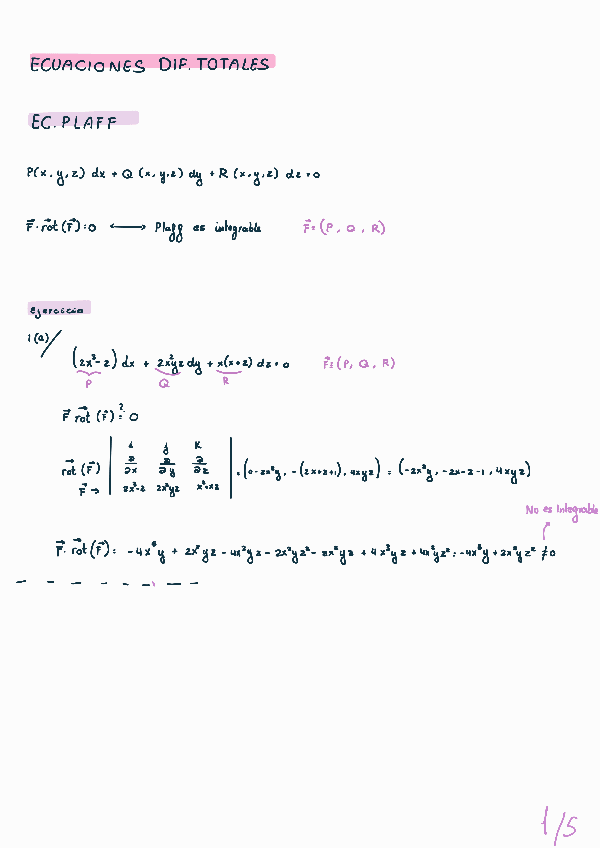 ECUACIONES DIF. TOTALES
EC. PLAFF
P(x,y,z) dx + Q (x,y,z) dy + R (x,y,z) dz = 0
F⃗·rot⃗(F⃗)=0 ⟷ Plaff es integrable F⃗=(P, Q, R)
Ejercicio
1(a)/
(2x³-z) dx + 2x²yz dy + x(x+z) dz = 0 F⃗=(P, Q, R)
P Q R
F⃗ rot⃗ (F⃗) ?= 0
i j k
rot⃗ (F⃗) ∂/∂x ∂/∂y ∂/∂z = (0-2x²y, -(2x+z+1), 4xyz) = (-2x²y, -2x-z-1, 4xyz)
F⃗ → 2x³-z 2x²yz x²+xz
No es Integrable
F⃗·rot⃗(F⃗)= -4x⁵y + 2x²yz - 4x³yz - 2x²yz² - 2x²yz + 4x³yz + 4x²yz² = -4x⁵y + 2x²yz² ≠ 0
1/5